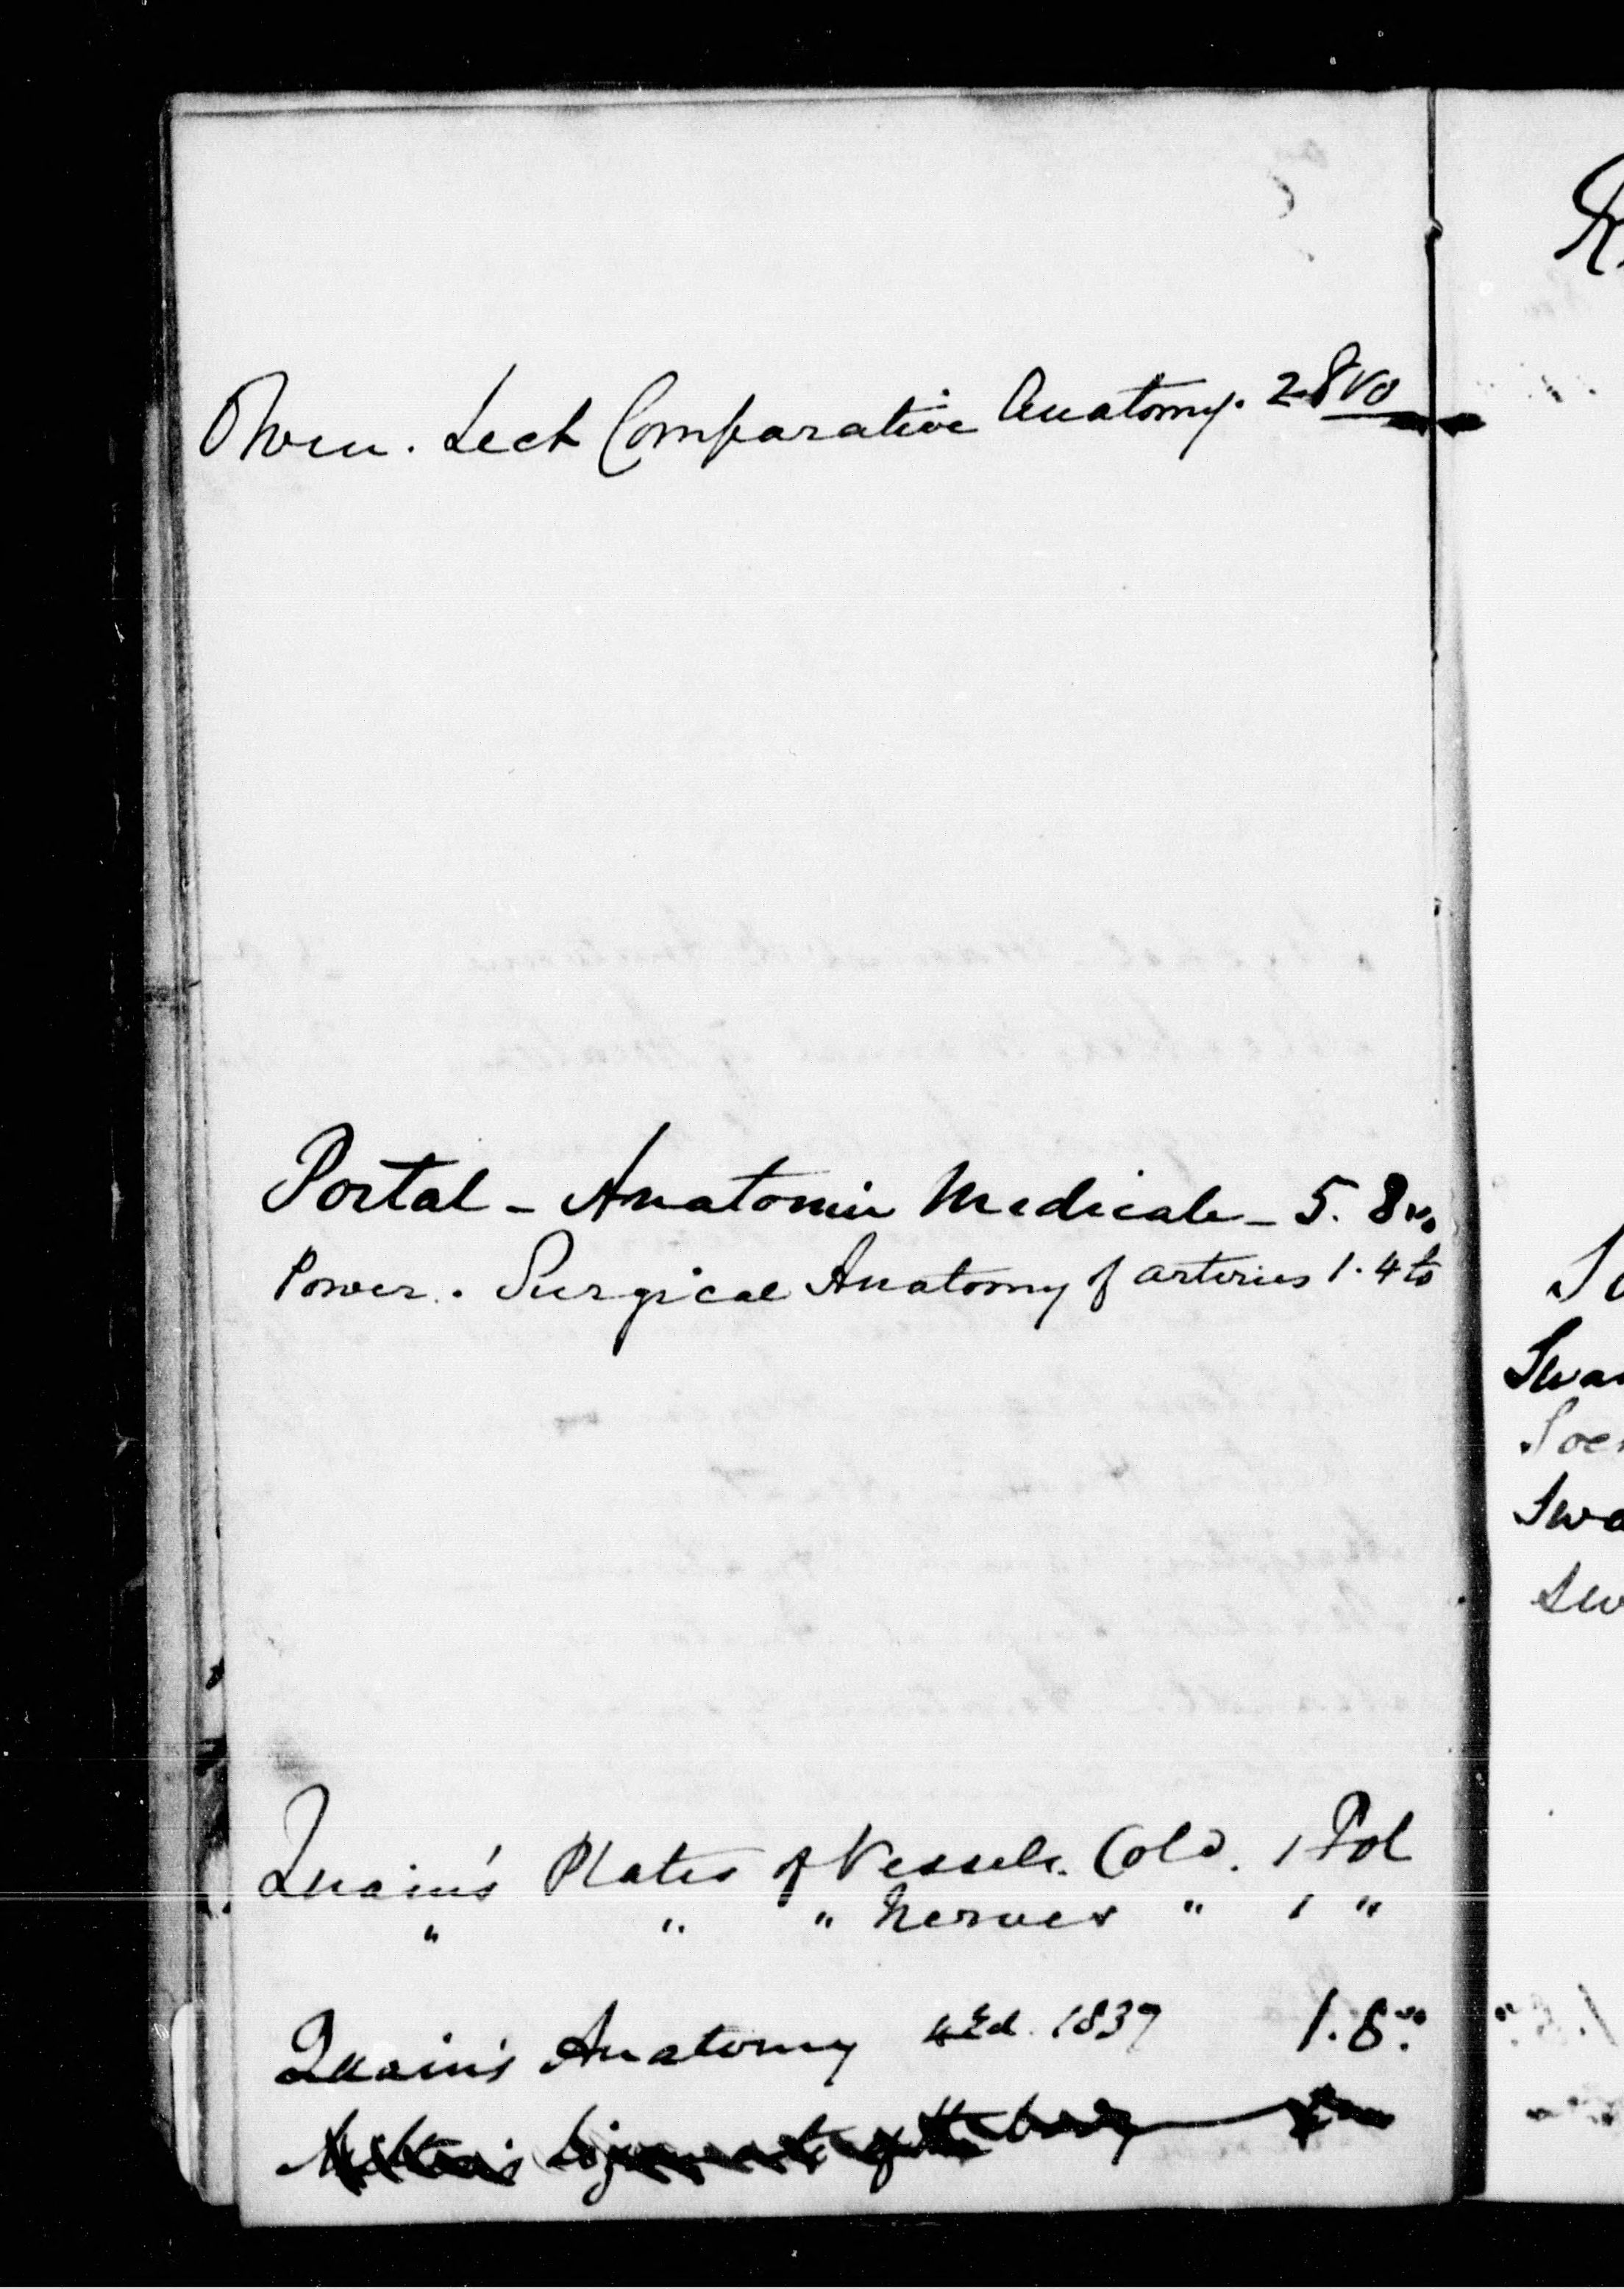 Owen. Lect Comparative Anatomy. 2 8vo
Portal - Anatomie Medicale - 5. 8vo
Power. Surgical Anatomy of arteries 1. 4to
Quain's Plates of Vessels. Cold. 1 Fol
" " " Nerves " 1 "
Quain's Anatomy 4 Ed. 1839 1. 8vo
Ligaments of the body
R
Swa
Soe
Swa
Sw